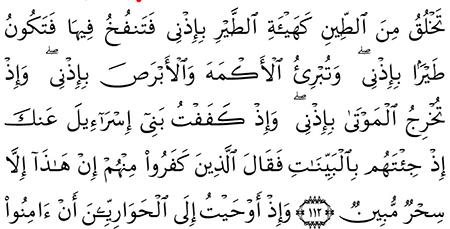 تَخْلُقُ مِنَ ٱلطِّينِ كَهَيْـَٔةِ ٱلطَّيْرِ بِإِذْنِى فَتَنفُخُ فِيهَا فَتَكُونُ
طَيْرًۢا بِإِذْنِى ۖ وَتُبْرِئُ ٱلْأَكْمَهَ وَٱلْأَبْرَصَ بِإِذْنِى ۖ وَإِذْ
تُخْرِجُ ٱلْمَوْتَىٰ بِإِذْنِى ۖ وَإِذْ كَفَفْتُ بَنِىٓ إِسْرَٰٓءِيلَ عَنكَ
إِذْ جِئْتَهُم بِٱلْبَيِّنَـٰتِ فَقَالَ ٱلَّذِينَ كَفَرُوا۟ مِنْهُمْ إِنْ هَـٰذَآ إِلَّا
سِحْرٌ مُّبِينٌ ﴿١١٢﴾ وَإِذْ أَوْحَيْتُ إِلَى ٱلْحَوَارِيِّـۧنَ أَنْ ءَامِنُوا۟